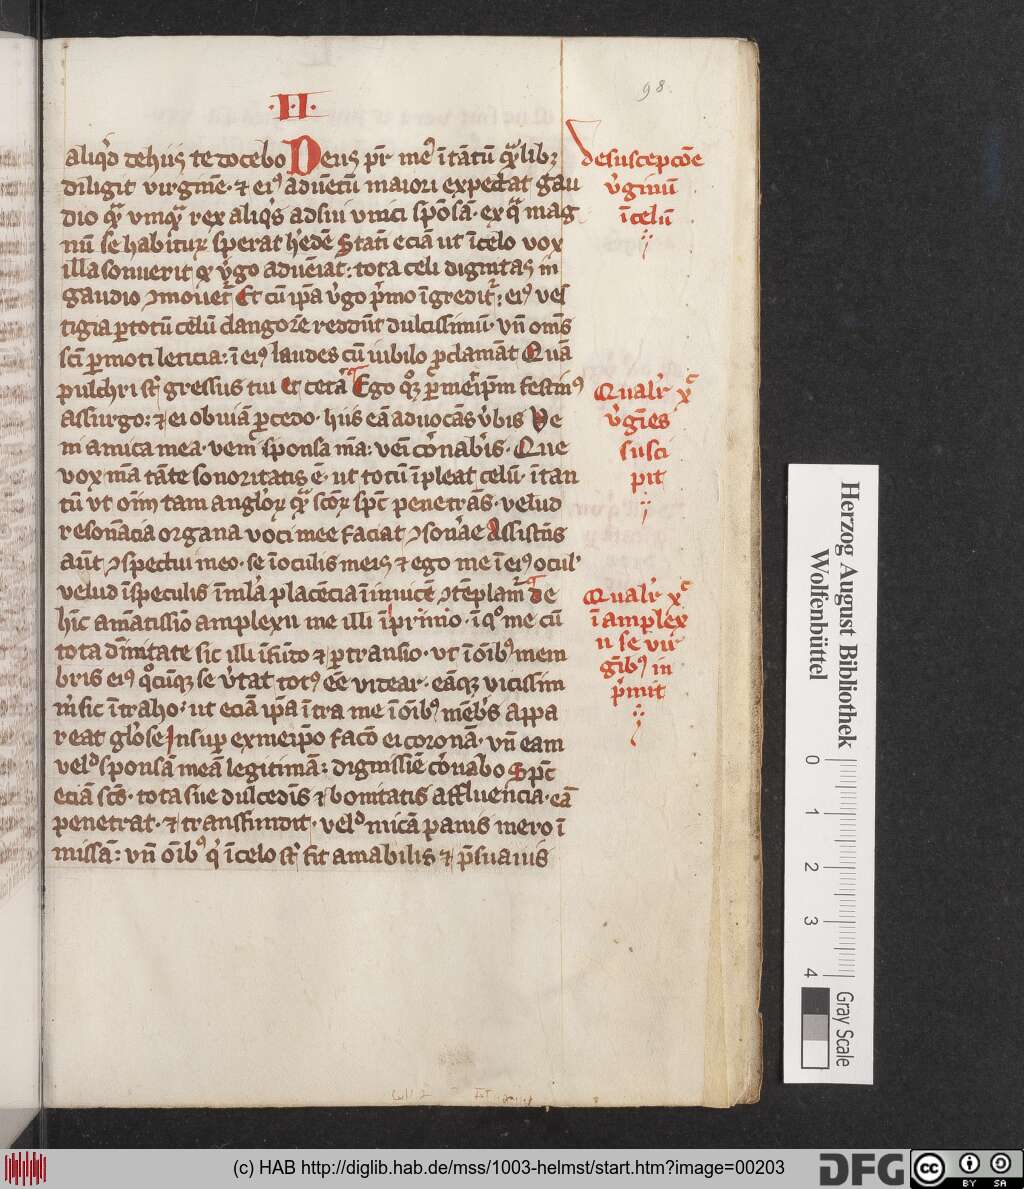 ·II·
98.
aliq̄d de hiis te docebo Deus pr̄ me᷑ ītātū q̄lib₃
diligit virginē · ⁊ ei⁹ aduētū maiori expectat gau
dio q̄ vmq̄ rex aliq̄s ad sui vnici spōsā · ex q̄ mag
nū se habituꝝ sperat h᷑edē Statī eciā ut ī celo vox
illa sonuerit qꝫ v̓go aduēiat : tota celi dignitas in
gaudio ꝯmouet᷑ Et cū ip̄a v̓go p̄mo īgredit᷑ : ei⁹ ves
tigia ꝑ totū celū clangorē reddūt dulcissimū · vn̄ om̄s
sc̄i ꝑmoti leticia : ī ei⁹ laudes cū iubilo ꝓclamāt Quā
pulchri st̄ gressus tui et cetā Ego qꝫ ꝑ meīpm̄ festin⁹
assurgo : ⁊ ei obuiā ꝓcedo · hiis eā aduocās v̓bis Ve
ni amica mea · veni sponsa m̄a : veī cōnab̓is · Que
vox m̄a tāte sonoritatis ē · ut totū īpleat celū · ī tan
tū ut om̄m tam angloꝝ q̄ sc̄oꝝ sp̄c penetrās · velud
resonācia organa voci mee faciat ꝯsonāe Assistēs
aūt ꝯspectui meo · se ī oculis meis ⁊ ego me ī ei⁹ ocul᷑
velud ī speculis ī ml̄a placēcia īinuicē ꝯtēplam᷑ De
hīc amātissīo amplexu me illi īprimo · ī q° me cū
tota dīnitate sic illi īfūto ⁊ ꝑtransio · vt ī oīb⁹ mem
bris ei⁹ q̊cūqꝫ se v̓tat tot⁹ eē videar · eāqꝫ vicissim
m̓ sic ī traho : ut eciā ip̄a ītra me ī oīb⁹ mēb̓s appa
reat gl̓ōse Insuꝑ ex meip̄o facō ei coronā · vn̄ eam
vel᷑ sponsā meā legitimā : dignissīe cōnabo Sp̄c
eciā sc̄s · tota sue dulcedīs ⁊ bonitatis affluencia · eā
penetrat · ⁊ transfundit · vel᷑ micā panis mero ī
missā : vn̄ oīb⁹ q̓ ī celo st̄ fit amabilis ⁊ p̄suauis
de suscepcōe
v̓ginū
ī celū
Qualit᷑ xp̄c
v̓gīes
susci
pit
Qualit᷑ xp̄c
ī amplex
u se vir
gīb⁹ in
p̓mit
Herzog August Bibliothek
Wolfenbüttel
0 1 2 3 4
Gray Scale
(c) HAB http://diglib.hab.de/mss/1003-helmst/start.htm?image=00203
DFG
cc BY SA